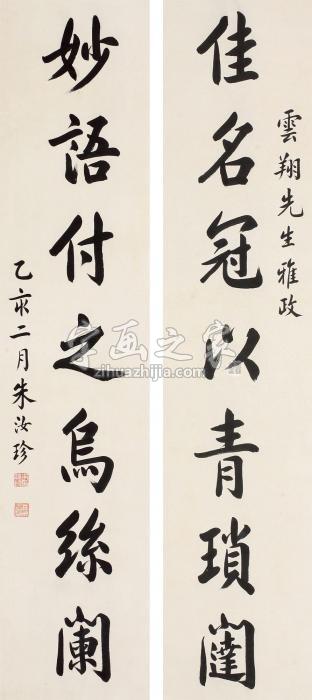 雲翔先生雅政
佳名冠以青瑣闥
妙語付之烏絲闌
乙亥二月朱汝珍
字画之家
zihuazhijia.com